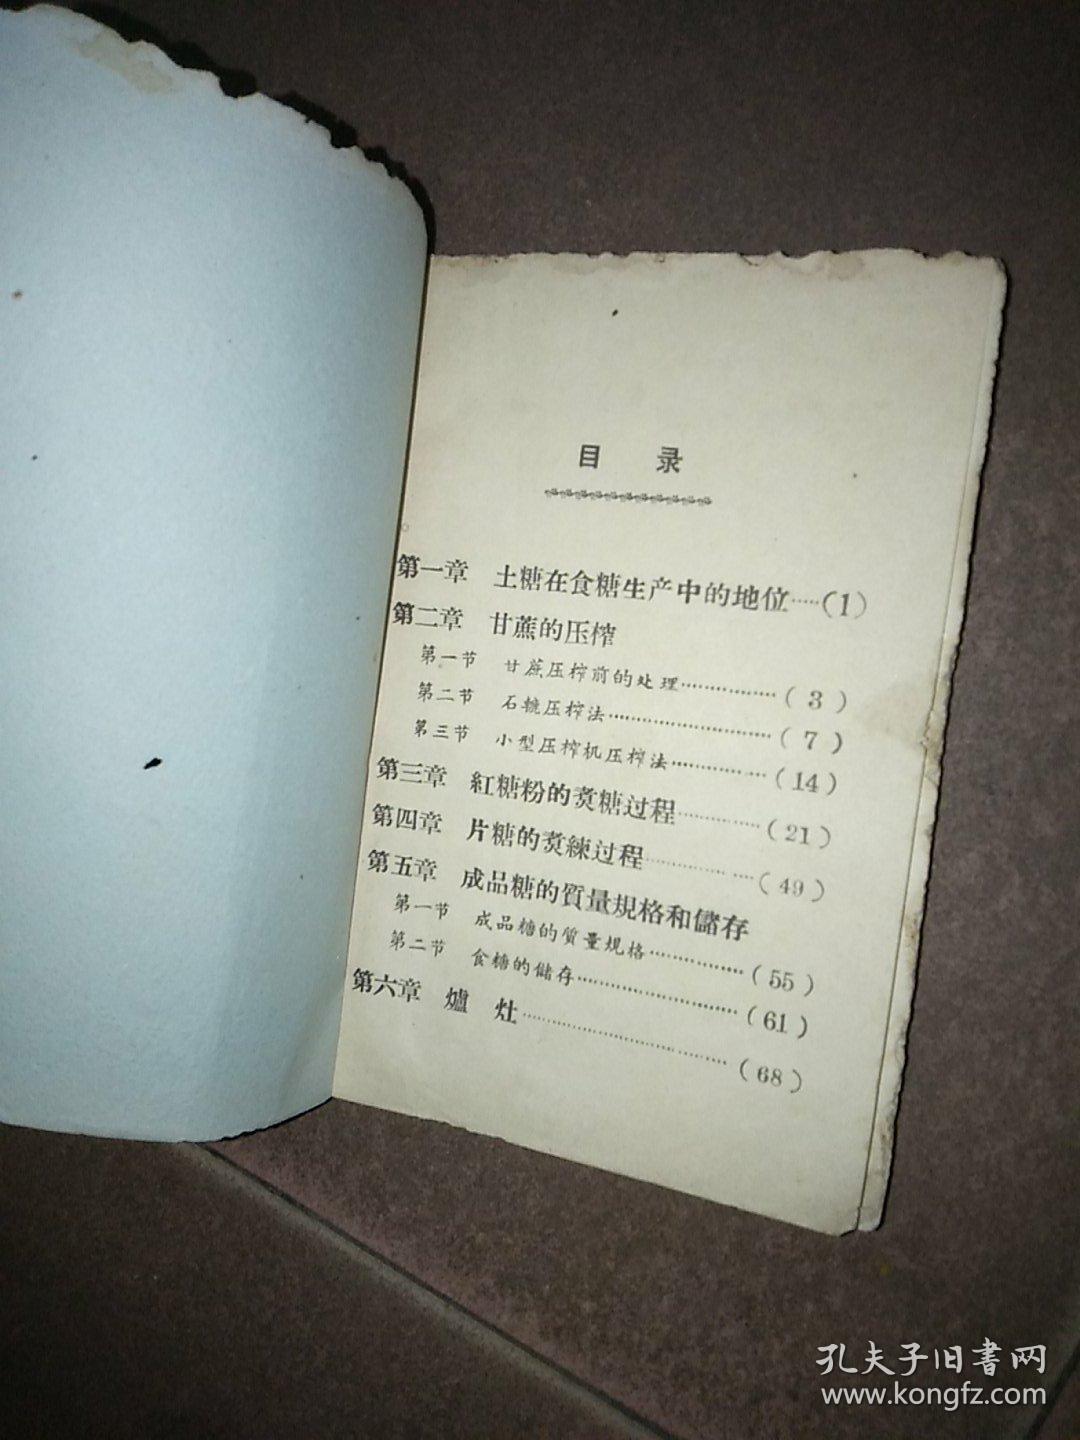 目 录
第一章 土糖在食糖生产中的地位……(1)
第二章 甘蔗的压榨
第一节 甘蔗压榨前的处理………………(3)
第二节 石辘压榨法…………………………(7)
第三节 小型压榨机压榨法………………(14)
第三章 紅糖粉的煑糖过程……………(21)
第四章 片糖的煑練过程………………(49)
第五章 成品糖的質量規格和儲存
第一节 成品糖的質量規格………………(55)
第二节 食糖的儲存…………………………(61)
第六章 爐 灶…………………………………(68)
孔夫子旧書网
www.kongfz.com